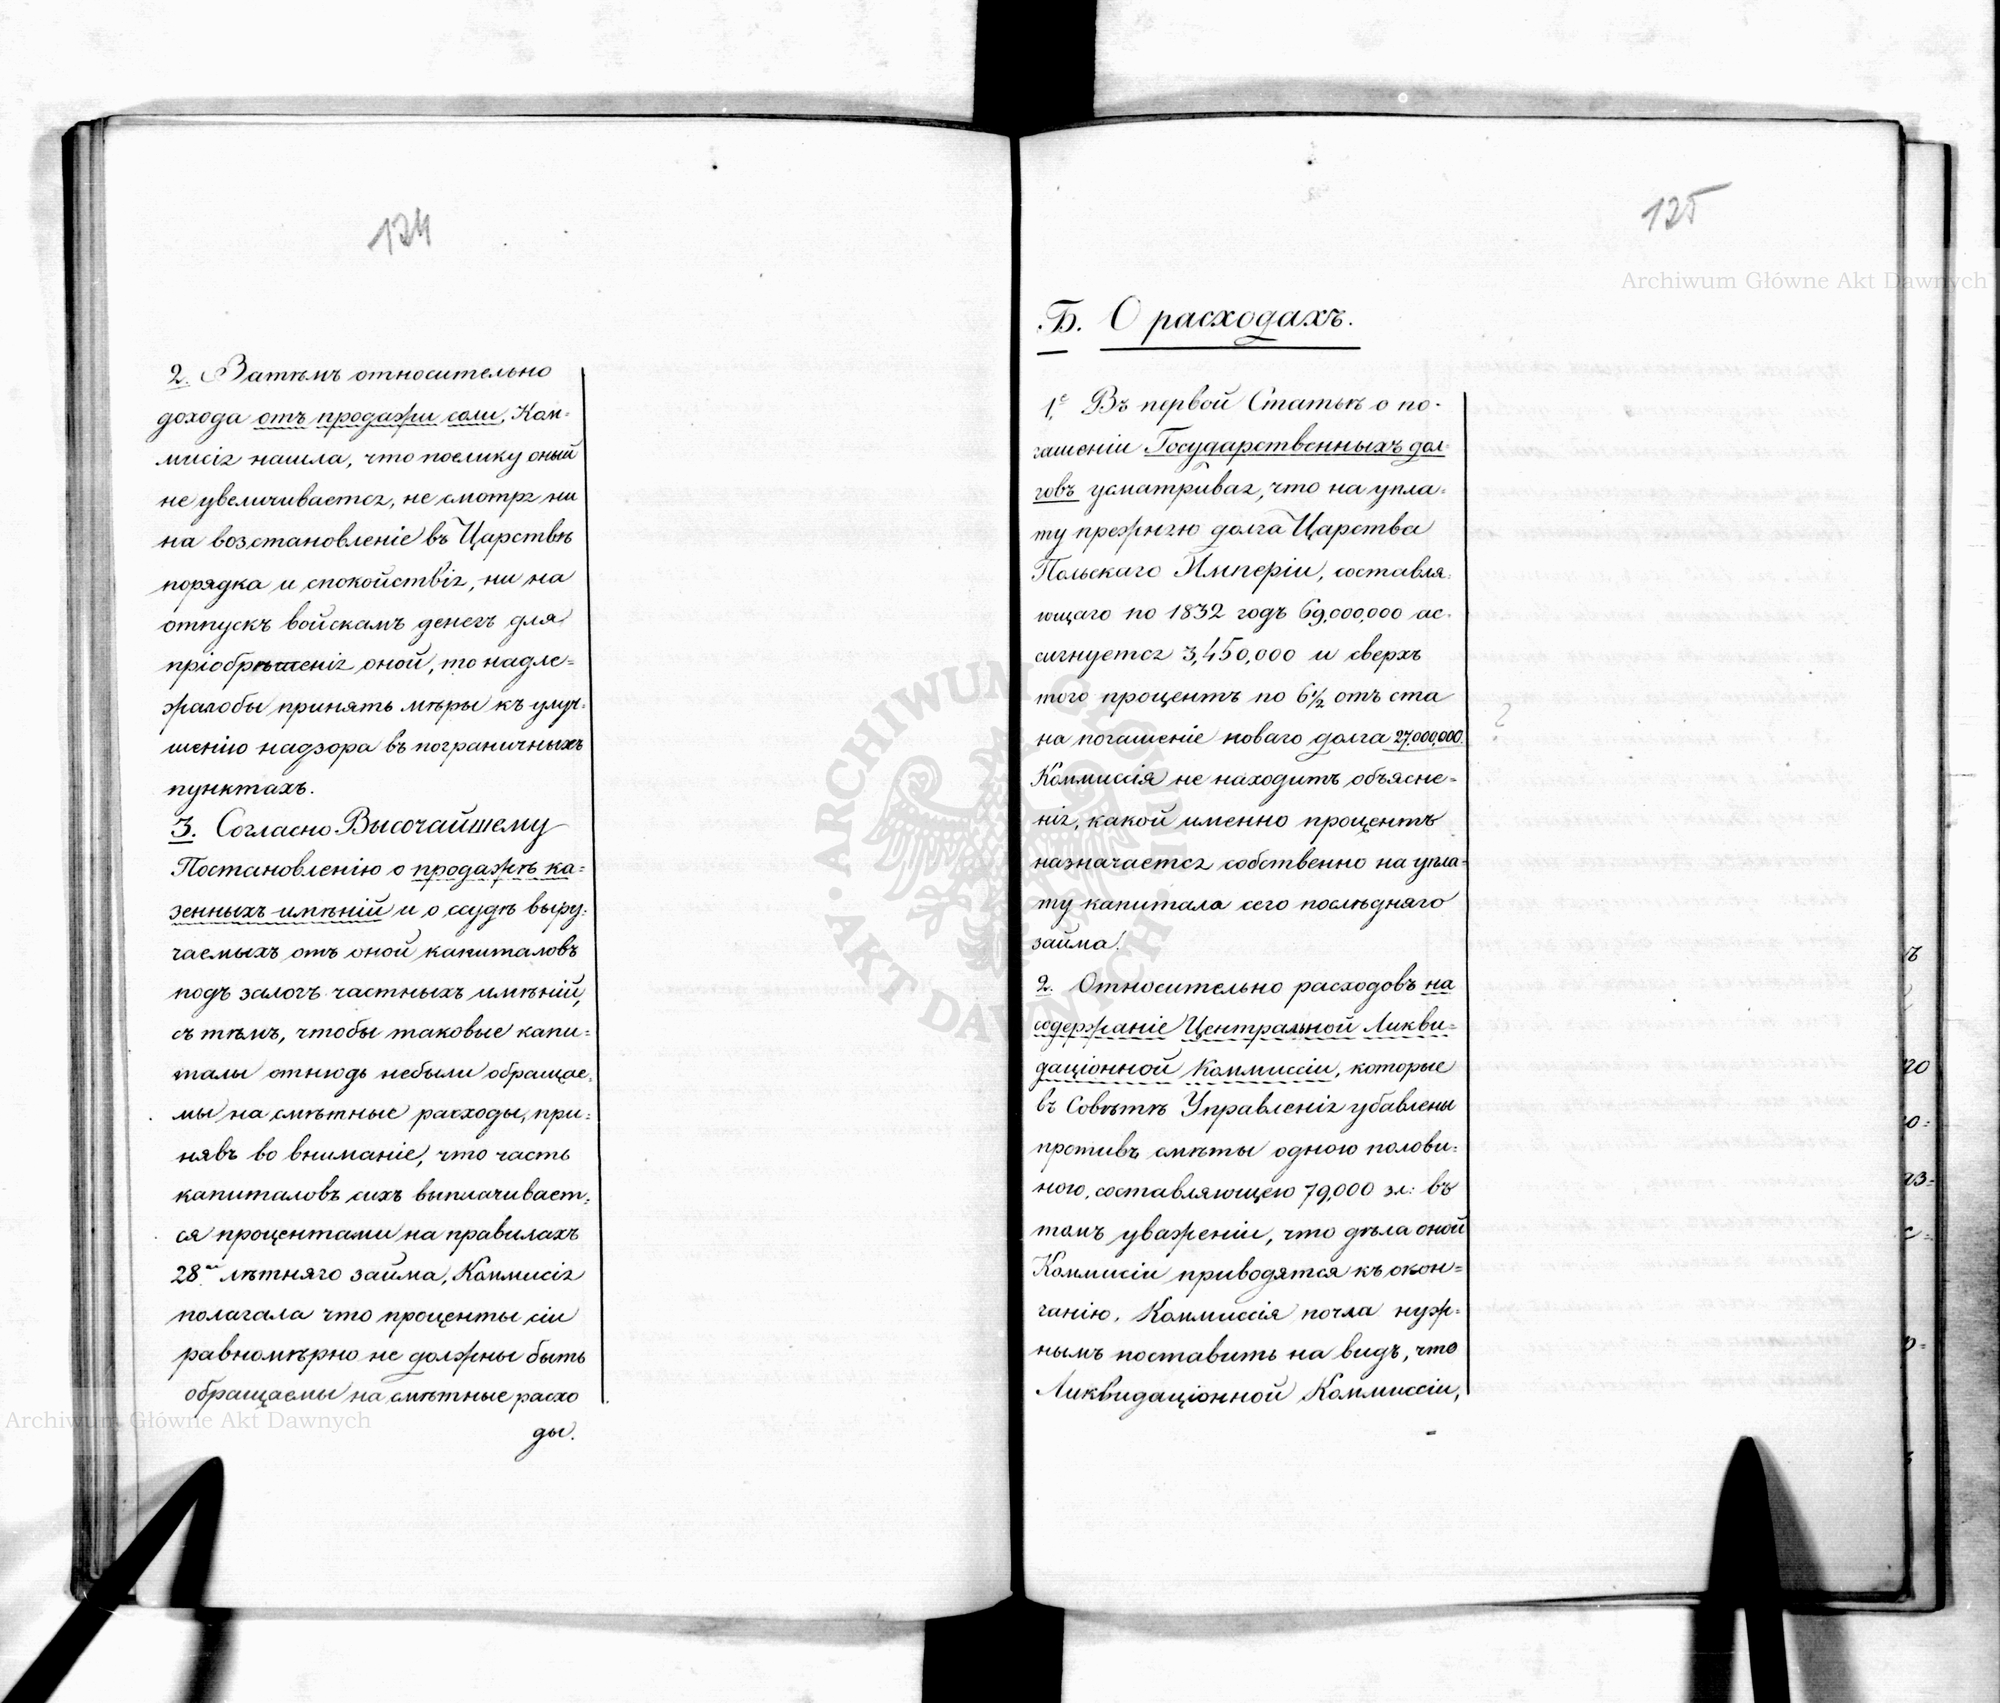 124
2. Затѣмъ относительно
дохода отъ продажи соли, Ком-
мисія нашла, что поелику оный
не увеличивается, не смотря ни
на возстановленіе въ Царствѣ
порядка и спокойствія, ни на
отпускъ войскамъ денегъ для
пріобрѣтенія оной, то надле-
жалобы принять мѣры къ улуч-
шенію надзора въ пограничныхъ
пунктахъ.
3. Согласно Высочайшему
Постановленію о продажѣ ка-
зенныхъ имѣній и о ссудѣ выру-
чаемыхъ отъ оной капиталовъ
подъ залогъ частныхъ имѣній,
съ тѣмъ, чтобы таковые капи-
талы отнюдь небыли обращае-
мы на смѣтные расходы, при-
нявъ во вниманіе, что часть
капиталовъ сихъ выплачивает-
ся процентами на правилахъ
28ми лѣтняго займа, Коммисія
полагала что проценты сіи
равномѣрно не должны быть
обращаемы на смѣтные расхо
ды.
125
Б. О расходахъ.
1е Въ первой Статьѣ о по-
гашеніи Государственныхъ дол-
говъ усматривая, что на упла-
ту прежняго долга Царства
Польскаго Имперіи, составля-
ющаго по 1832 годъ 69,000,000 ас-
сигнуется 3,450,000 и сверхъ
того процентъ по 6½ отъ ста
на погашеніе новаго долга 27,000,000.
Коммиссія не находитъ объясне-
нія, какой именно процентъ
назначается собственно на упла-
ту капитала сего послѣдняго
займа.
2. Относительно расходовъ на
содержаніе Центральной Ликви-
даціонной Коммиссіи, которые
въ Совѣтѣ Управленія убавлены
противъ смѣты одною полови-
ною, составляющею 79,000 зл: въ
томъ уваженіи, что дѣла оной
Коммисіи приводятся къ окон-
чанію. Коммиссія почла нуж-
нымъ поставить на видъ, что
Ликвидаціонной Коммиссіи,
Archiwum Główne Akt Dawnych
Archiwum Główne Akt Dawnych
ARCHIWUM GŁÓWNE AKT DAWNYCH